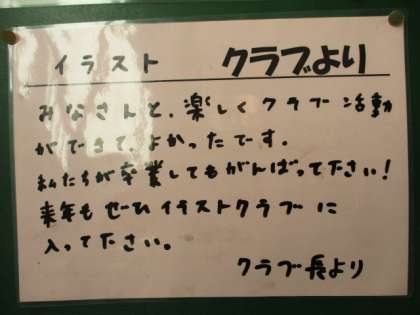 イラスト クラブより
みなさんと、楽しくクラブ活動
ができて、よかったです。
私たちが卒業してもがんばって下さい!
来年もぜひイラストクラブに
入って下さい。
クラブ長より